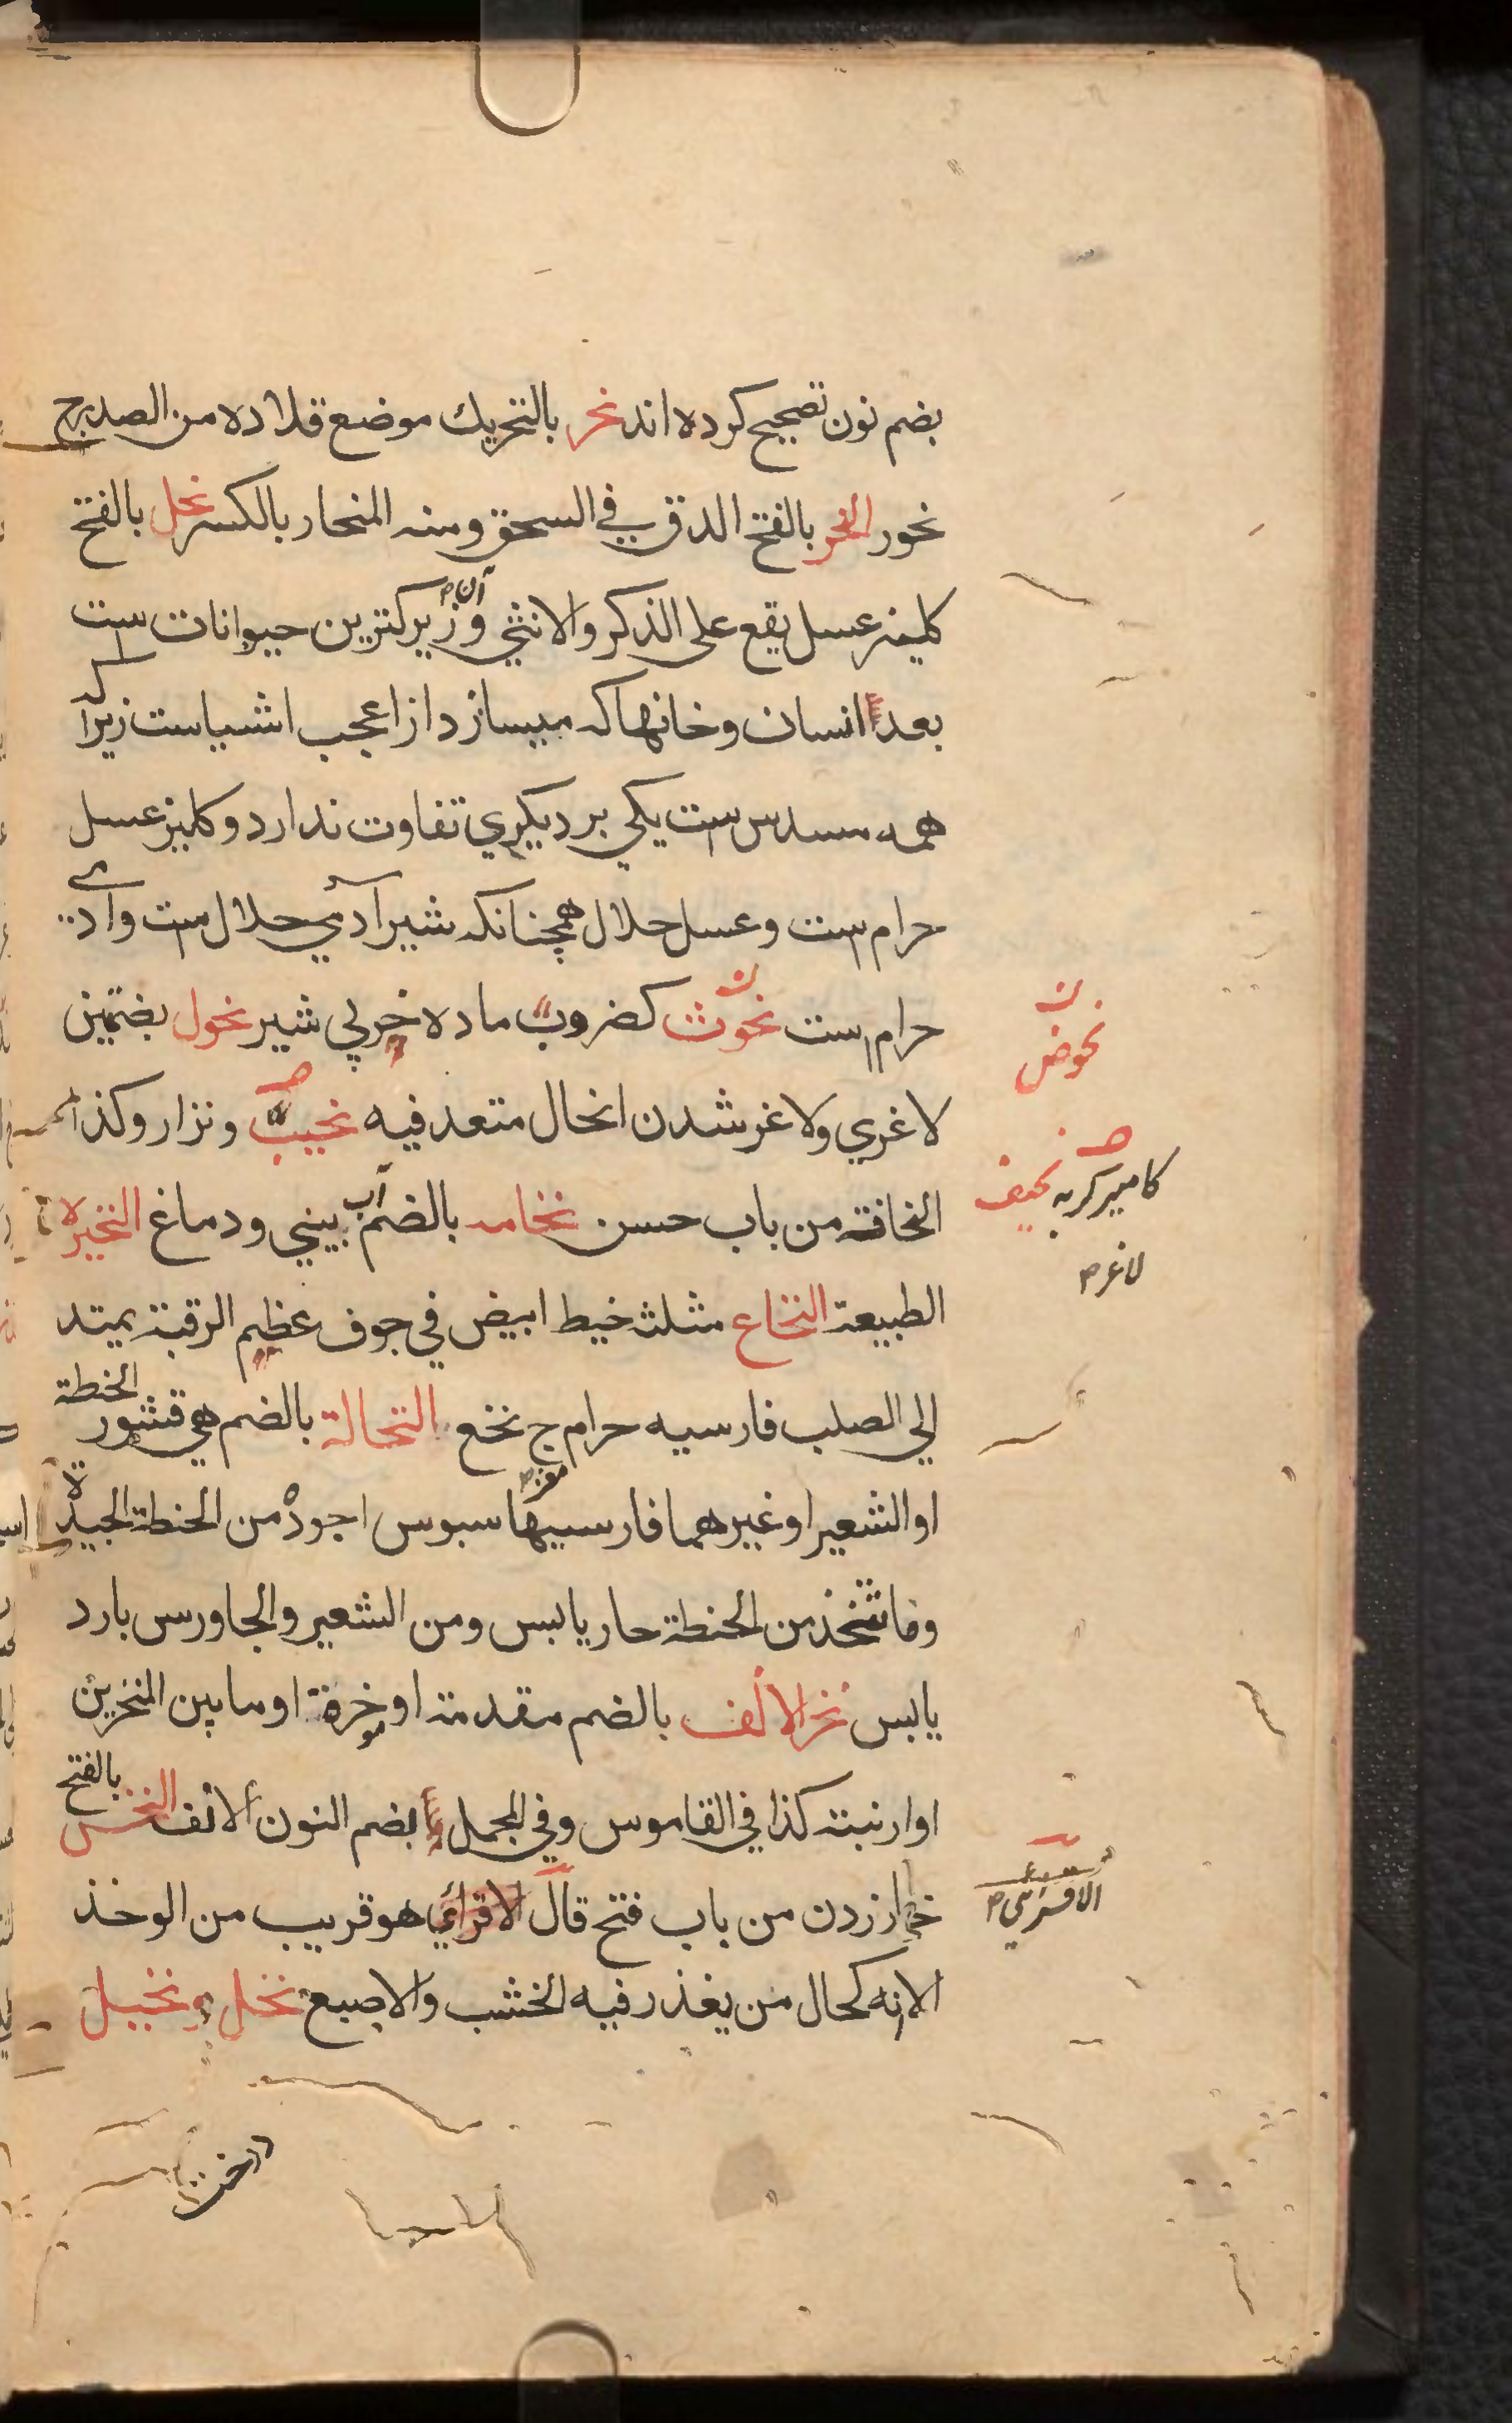 بضم نون تصحيح كرده اند نحر بالتحريك موضع قلاده من الصدر ج
نحور النحر بالفتح الدق في السحق ومنه المنحار بالكسر نحل بالفتح
كلينز عسل يقع على الذكر والانثي و آن زيركترين حيوانات ست
بعد انسان وخانها كه ميسازد از اعجب اشياست زيرا كه
همه مسدس ست يكي بر ديكري تفاوت ندارد وكلينز عسل
حرام ست وعسل حلال همچنانكه شير آدمي حلال ست وآدمي
حرام ست نحوث كضروب ماده خر بي شير نحول بضمتين
لاغري ولاغر شدن انحال متعد فيه نحيب ونزار وكذا
النحافة من باب حسن نخامه بالضم آب بيني ودماغ النخيرة
الطبيعة النخاع مثلثه خيط ابيض في جوف عظم الرقبة يمتد
الي الصلب فارسيه حرام ج نخع النخالة بالضم هي قشور الحنطة
او الشعير او غيرهما فارسيها سبوس اجوده من الحنطة الجيدة
وما تتخذ من الحنطة حار يابس ومن الشعير والجاورس بارد
يابس نخر الانف بالضم مقدمته او خرقة او ما بين المنخرين
او ارنبته كذا في القاموس وفي المجمل بضم النون الانف النخس بالفتح
خار زدن من باب فتح قال الاقرائي هو قريب من الوخذ
الا انه كحال من يغذر فيه الخشب والاصبع نخل و نخيل
نحوض
كامير كربه نحيف
لاغر
الاقسرى
درخت